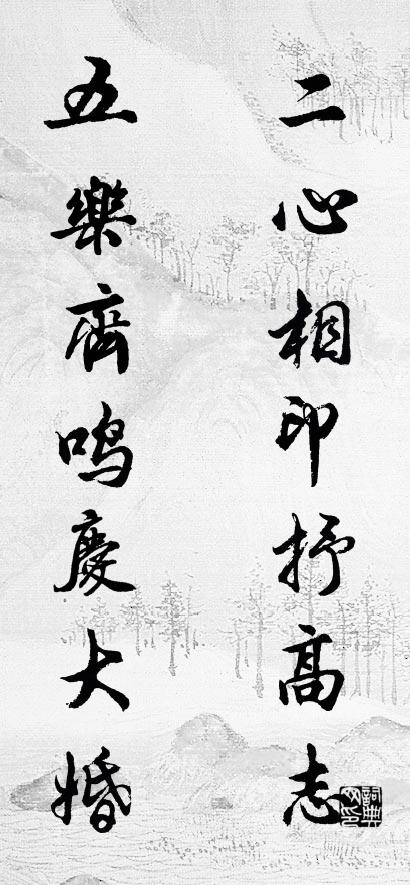 二心相印抒高志
五樂齊鳴慶大婚